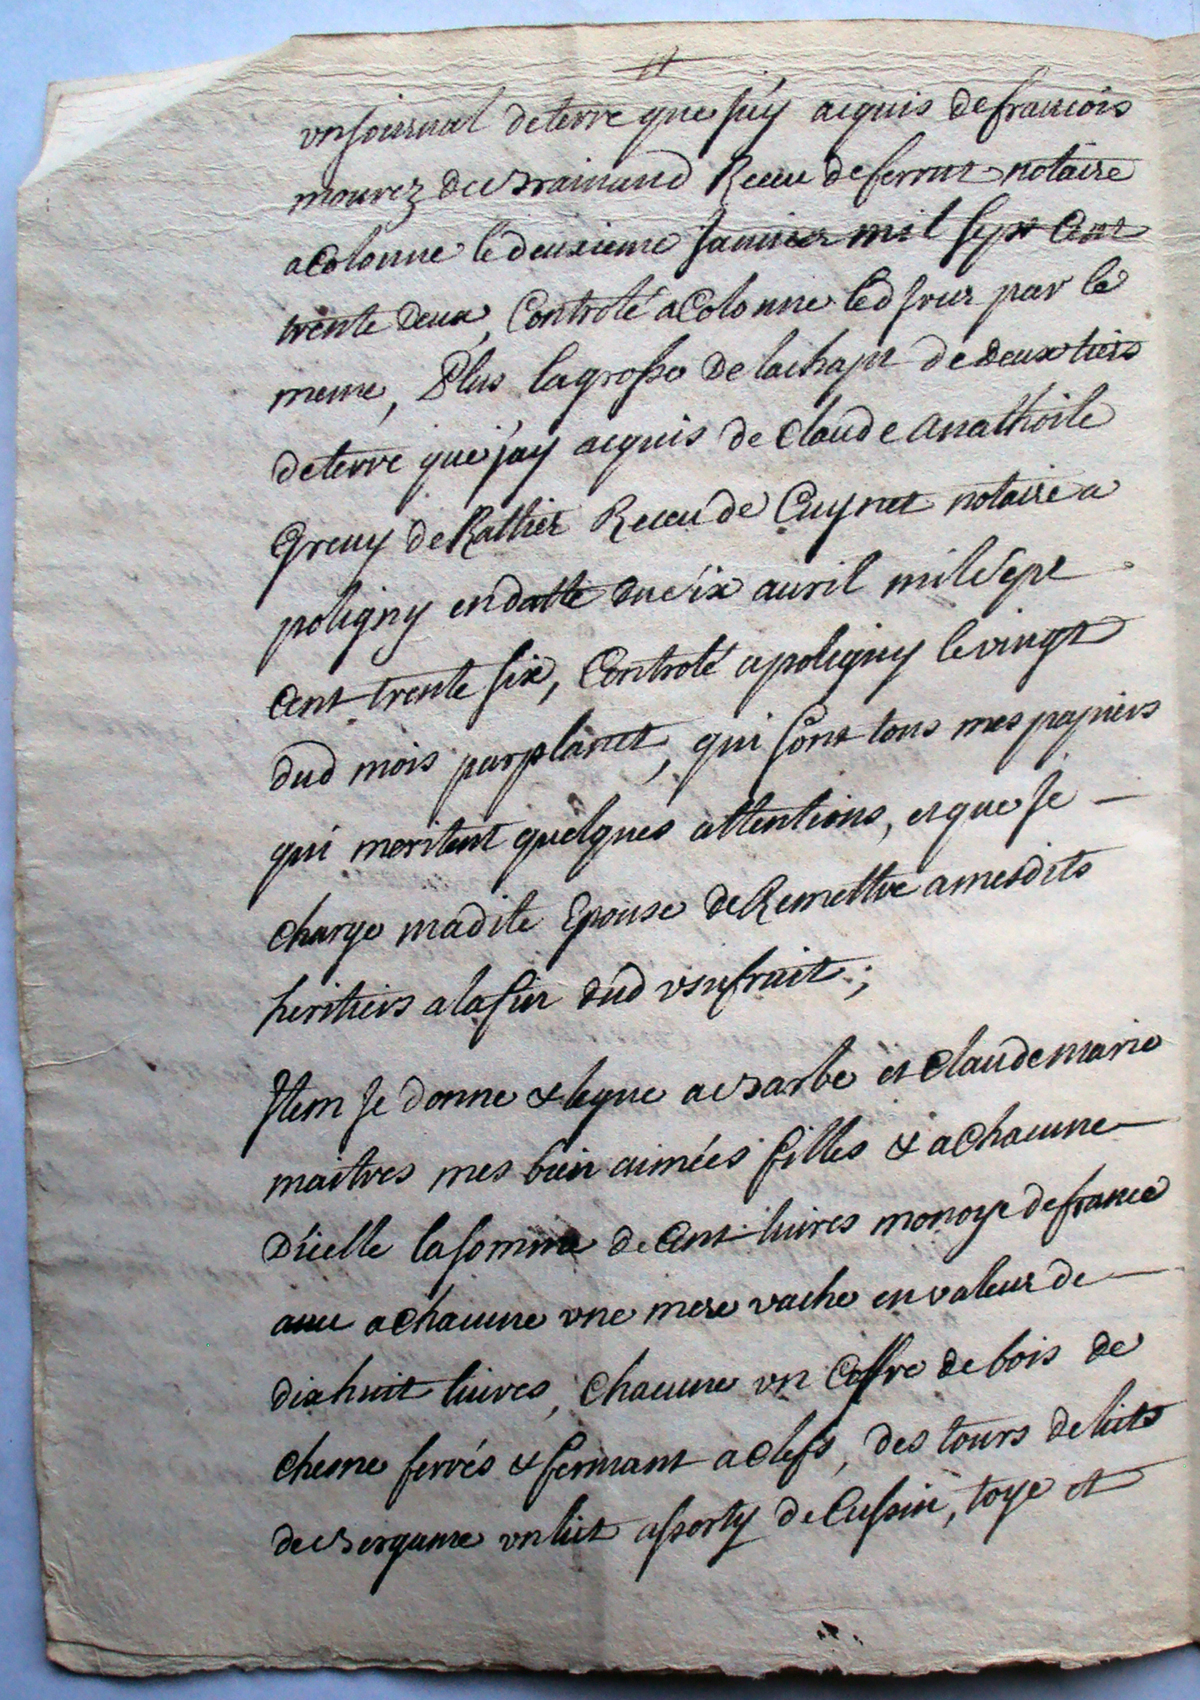 vn Journal de terre que j'ay acquis de francois
mourez de Brainand Receu de ferrut notaire
a Colonne le deuxieme Januier mil sept Cent
trente deux, Controlé a Colonne led Jour par le
meme, Plus la grosse de lachapt de deux tiers
de terre que j'ay acquis de Claude Anathoile
Greuy de Rathier Receu de Cuynet notaire a
poligny en datte du six auril mil sept
Cent trente six, Controlé a poligny le vingt
dud mois par planet, qui sont tous mes papiers
qui meritent quelques attentions, et que Je
charge madite Epouse de Remettre a mesdits
heritiers a la fin dud vsufruit;
Item Je donne & legue a Barbe et Claude marie
maitres mes bien aimées filles & a Chacune
D'icelle la somme de Cent liures monoye de france
auec a Chacune vne mere vache en valeur de
dix huit liures, Chacune vn Coffre de bois de
chesne ferrés & fermant a Clefs, des tours de lits
de Bergame vn lit assorty de Cussin, toye et